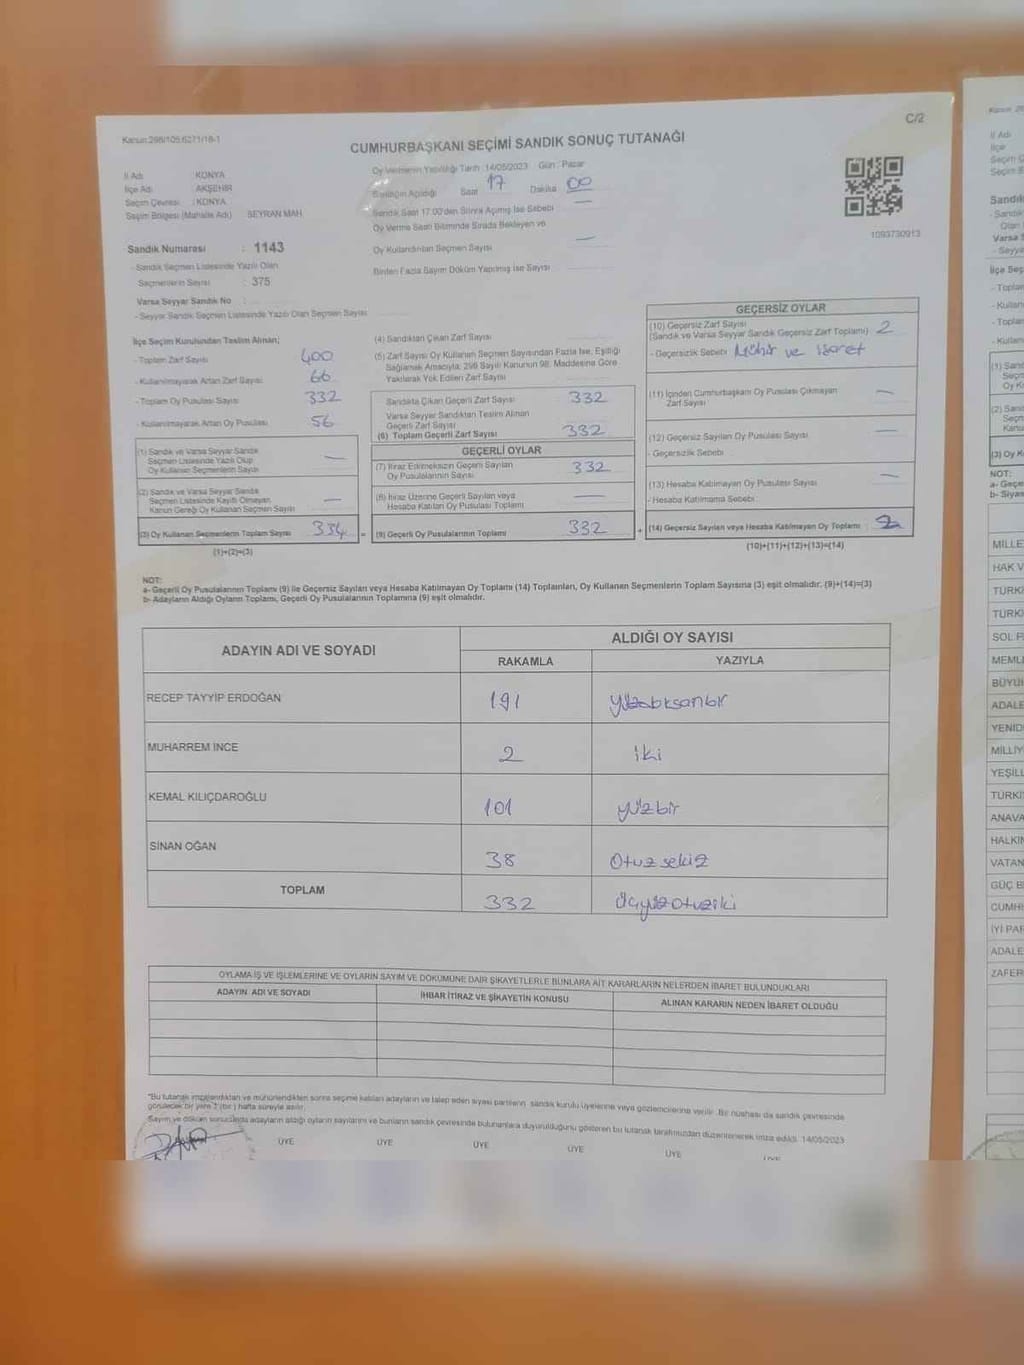 Kanun:298/105,6271/18-1
C/2
CUMHURBAŞKANI SEÇİMİ SANDIK SONUÇ TUTANAĞI
İl Adı : KONYA
İlçe Adı : AKŞEHİR
Seçim Çevresi : KONYA
Seçim Bölgesi (Mahalle Adı) SEYRAN MAH.
Sandık Numarası : 1143
- Sandık Seçmen Listesinde Yazılı Olan
Seçmenlerin Sayısı : 375
Varsa Seyyar Sandık No :
- Seyyar Sandık Seçmen Listesinde Yazılı Olan Seçmen Sayısı
Oy Vermenin Yapıldığı Tarih :14/05/2023 Gün : Pazar
Sandığın Açıldığı Saat 17 Dakika 00
Sandık Saat 17:00'den Sonra Açılmış İse Sebebi —
Oy Verme Saati Bitiminde Sırada Bekleyen ve
Oy Kullandırılan Seçmen Sayısı —
Birden Fazla Sayım Döküm Yapılmış İse Sayısı
1093730913
İlçe Seçim Kurulundan Teslim Alınan;
- Toplam Zarf Sayısı 400
- Kullanılmayarak Artan Zarf Sayısı 66
- Toplam Oy Pusulası Sayısı 332
- Kullanılmayarak Artan Oy Pusulası 56
(1) Sandık ve Varsa Seyyar Sandık
Seçmen Listesinde Yazılı Olup
Oy Kullanan Seçmenlerin Sayısı —
(2) Sandık ve Varsa Seyyar Sandık
Seçmen Listesinde Kayıtlı Olmayan
Kanun Gereği Oy Kullanan Seçmen Sayısı —
(3) Oy Kullanan Seçmenlerin Toplam Sayısı 334
(1)+(2)=(3)
(4) Sandıktan Çıkan Zarf Sayısı
(5) Zarf Sayısı Oy Kullanan Seçmen Sayısından Fazla İse, Eşitliği
Sağlamak Amacıyla; 298 Sayılı Kanunun 98. Maddesine Göre
Yakılarak Yok Edilen Zarf Sayısı
Sandıkta Çıkan Geçerli Zarf Sayısı 332
Varsa Seyyar Sandıktan Teslim Alınan
Geçerli Zarf Sayısı
(6) Toplam Geçerli Zarf Sayısı 332
GEÇERLİ OYLAR
(7) İtiraz Edilmeksizin Geçerli Sayılan
Oy Pusulalarının Sayısı 332
(8) İtiraz Üzerine Geçerli Sayılan veya
Hesaba Katılan Oy Pusulası Toplamı —
(9) Geçerli Oy Pusulalarının Toplamı 332
GEÇERSİZ OYLAR
(10) Geçersiz Zarf Sayısı
(Sandık ve Varsa Seyyar Sandık Geçersiz Zarf Toplamı) 2
- Geçersizlik Sebebi Mühür ve işaret
(11) İçinden Cumhurbaşkanı Oy Pusulası Çıkmayan
Zarf Sayısı —
(12) Geçersiz Sayılan Oy Pusulası Sayısı —
- Geçersizlik Sebebi
(13) Hesaba Katılmayan Oy Pusulası Sayısı —
- Hesaba Katılmama Sebebi
(14) Geçersiz Sayılan veya Hesaba Katılmayan Oy Toplamı 2
(10)+(11)+(12)+(13)=(14)
NOT:
a- Geçerli Oy Pusulalarının Toplamı (9) ile Geçersiz Sayılan veya Hesaba Katılmayan Oy Toplamı (14) Toplamları, Oy Kullanan Seçmenlerin Toplam Sayısına (3) eşit olmalıdır. (9)+(14)=(3)
b- Adayların Aldığı Oyların Toplamı, Geçerli Oy Pusulalarının Toplamına (9) eşit olmalıdır.
ADAYIN ADI VE SOYADI
ALDIĞI OY SAYISI
RAKAMLA YAZIYLA
RECEP TAYYİP ERDOĞAN 191 yüzdoksanbir
MUHARREM İNCE 2 iki
KEMAL KILIÇDAROĞLU 101 yüzbir
SİNAN OĞAN 38 Otuz sekiz
TOPLAM 332 Üçyüzotuziki
OYLAMA İŞ VE İŞLEMLERİNE VE OYLARIN SAYIM VE DÖKÜMÜNE DAİR ŞİKAYETLERLE BUNLARA AİT KARARLARIN NELERDEN İBARET BULUNDUKLARI
ADAYIN ADI VE SOYADI İHBAR İTİRAZ VE ŞİKAYETİN KONUSU ALINAN KARARIN NEDEN İBARET OLDUĞU
*Bu tutanak imzalandıktan ve mühürlendikten sonra seçime katılan adayların ve talep eden siyasi partilerin sandık kurulu üyelerine veya gözlemcilerine verilir. Bir nüshası da sandık çevresinde
görülecek bir yere 1 (bir) hafta süreyle asılır.
Sayım ve döküm sonucunda adayların aldığı oyların sayılarını ve bunların sandık çevresinde bulunanlara duyurulduğunu gösteren bu tutanak tarafımızdan düzenlenerek imza edildi. 14/05/2023
ÜYE ÜYE ÜYE ÜYE ÜYE
İl Adı
İlçe
NOT:
MİLLE
HAK V
TÜRKİ
TÜRKİ
SOL P
MEMLE
BÜYÜ
ADALE
YENİD
MİLLİY
YEŞİLL
TÜRKİ
ANAVA
HALKI
VATAN
GÜÇ B
CUMH
İYİ PAR
ADALE
ZAFER